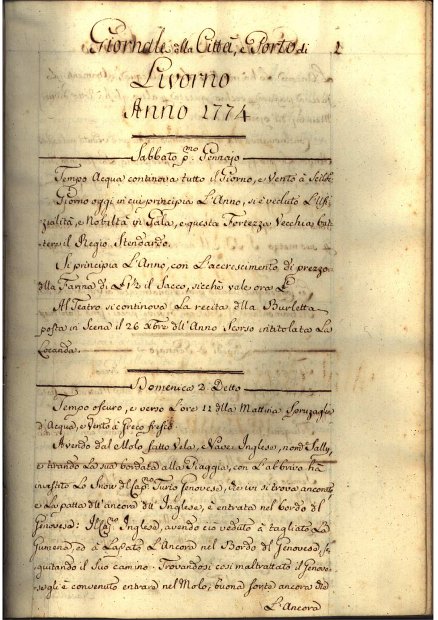 Giornale della Città, e Porto di 1
Livorno
Anno 1774
Sabbato p.mo Gennajo
Tempo Acqua continova tutto il Giorno, e Vento à
Giorno oggi in cui principia L'Anno, si è veduto L'Uffi-
zialità, e Nobiltà in Gala, e questa Fortezza Vecchia bat-
tere il Regio Stendardo.
Si principia L'Anno, con L'accrescimento di prezzo
della Farina di il Sacco, sicchè vale ora
Al Teatro si continova La recita della Burletta
posta in Scena il 26 Xbre dell'Anno Scorso intitolata La
Locanda.
Domenica 2. Detto
Tempo oscuro, e verso L'ore 11 della Mattina Spruzaglia
d'Acqua, e Vento à Greco fresco
Avendo dal Molo fatto Vela, Nave Inglese, nom.a Sally,
e tirando La sua bordata alla Piaggia, con L'abbrivo ha
investito Lo Snow del Cap.no Turio Genovese, che ivi si trova ancorato
e La patta dell'ancora dell'Inglese, è entrata nel bordo del
Genovese: Il Cap.no Inglese, avendo ciò veduto à tagliato La
Gumena, ed à Lasciato L'Ancora nel Bordo del Genovese,
guitando il Suo camino. Trovandosi così maltrattato il Genove-
se gli è convenuto entrare nel Molo, buona sorte ancora che
L'Ancora